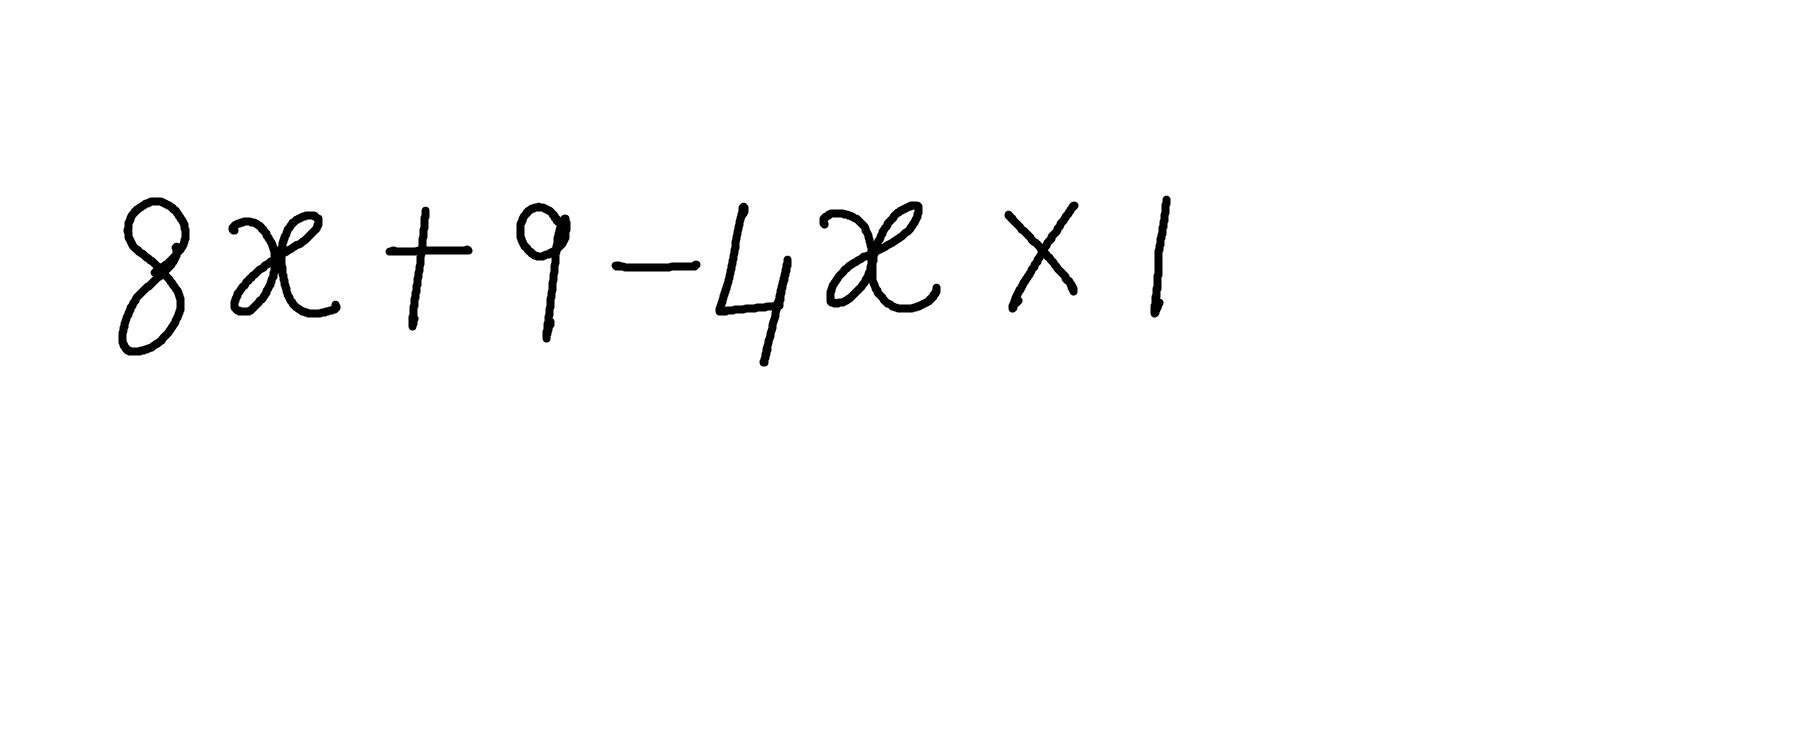 8x + 9 - 4x × 1